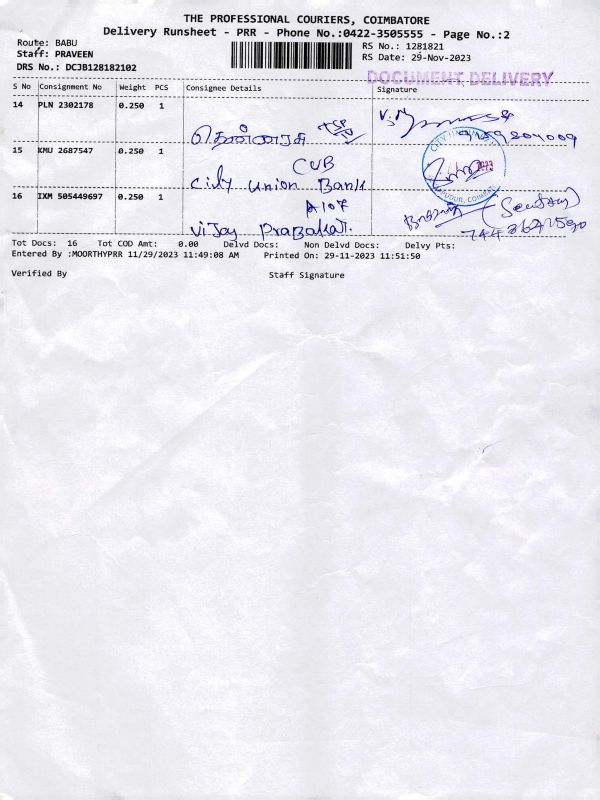 THE PROFESSIONAL COURIERS, COIMBATORE
Delivery Runsheet - PRR - Phone No.:0422-3505555 - Page No.:2
Route: BABU
RS No.: 1281821
Staff: PRAVEEN
RS Date: 29-Nov-2023
DRS No.: DCJB128182102
DOCUMENT DELIVERY
S No Consignment No Weight PCS Consignee Details Signature
14 PLN 2302178 0.250 1
தென்னரசு
15 KMU 2687547 0.250 1
CUB
City Union Bank
16 IXM 505449697 0.250 1
A107
Vijay Prabakar.
Tot Docs: 16 Tot COD Amt: 0.00 Delvd Docs: Non Delvd Docs: Delvy Pts:
Entered By :MOORTHYPRR 11/29/2023 11:49:08 AM Printed On: 29-11-2023 11:51:50
Verified By Staff Signature